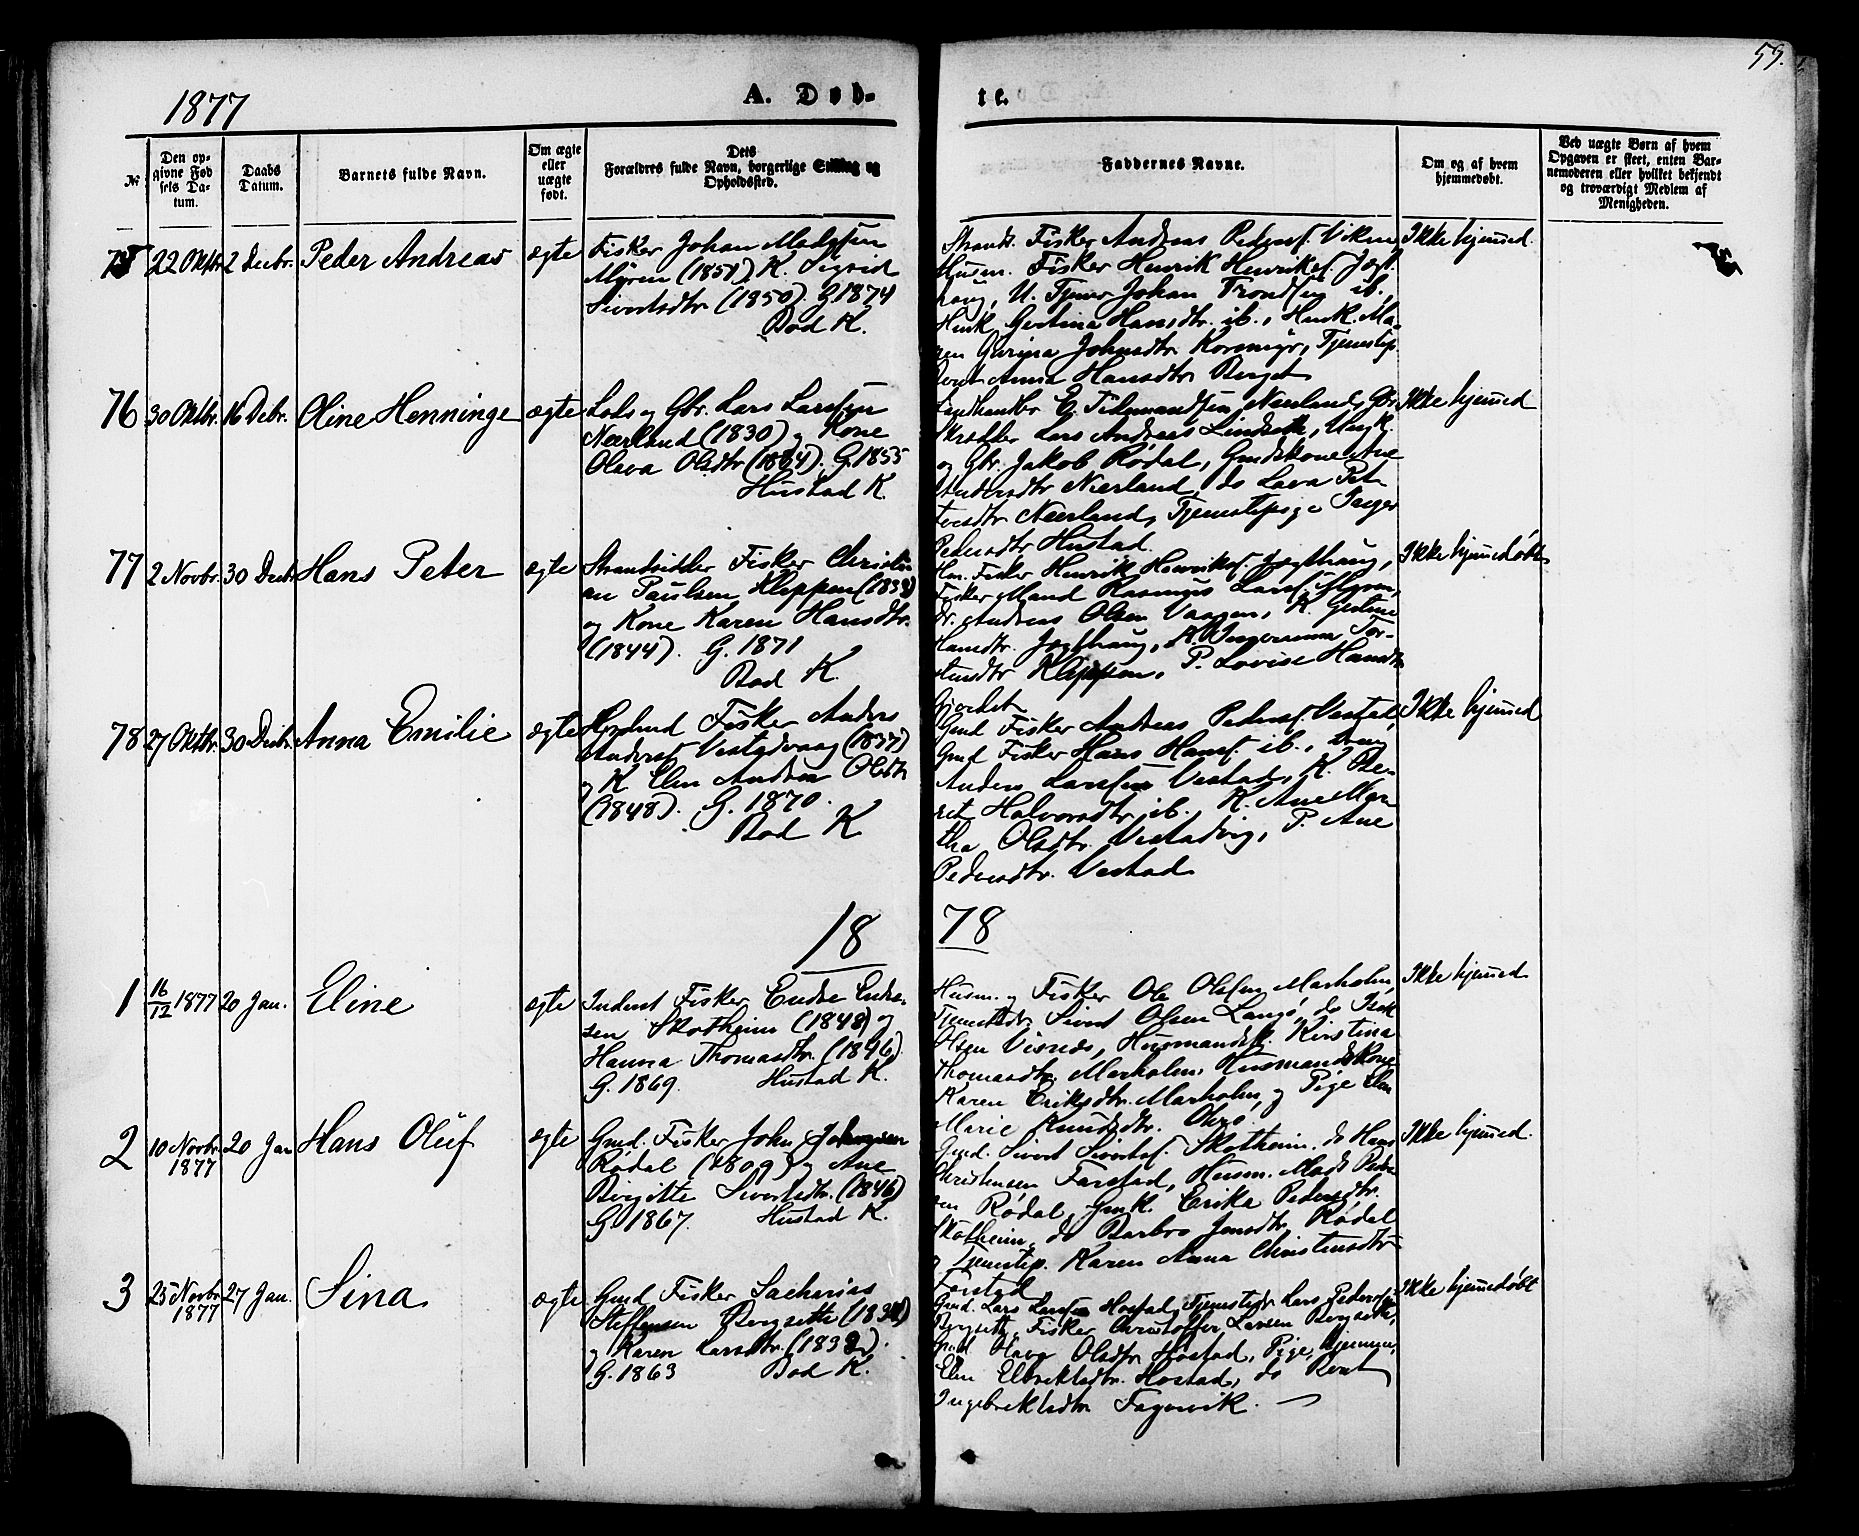 59.
1877
A. Døb-
te.
Nr.
Den op-
givne Fød
sels Da-
tum.
Daabs
Datum.
Barnets fulde Navn.
Om ægte
eller
uægte
født.
Dets
Forældres fulde Navn, borgerlige Stilling og
Opholdssted.
Faddernes Navne.
Om og af hvem
hjemmedøbt.
Ved uægte Børn af hvem
Opgaven er skeet, enten Bar-
nemoderen eller hvilket bekjendt
og troværdigt Medlem af
Menigheden.
75 22 Oktbr 2 Decbr. Peder Andreas ægte
Fisker Johan Madssen
Myren (1851). K. Sigrid
Sivertsdtr (1850). G. 1874
Bod K.
Strands. Fisker Andreas Peders. Viken
Husm. Fisker Henrik Henriks. Jægt
haug, U. Tjener Johan Trondsen ib.,
Husk. Gertina Hansdtr. ib., Husk. Ma-
ren Gurina Johnsdtr Korsmyr, Tjenestep.
Berit Anna Hansdtr Berget
Ikke hjemmed.
76 30 Oktbr. 16 Debr. Oline Henninge ægte
Lods og Gbr. Lars Larssen
Nærland (1830) og Kone
Olava Olsdtr (1834). G. 1855
Hustad K.
Landhandler E. Tidemandsen Nærland, Gbr
Skrædder Lars Andreas Lindset, Ungk.
og Gbr. Jakob Rødal, Gmdskone Ane
Andersdtr Nærland, do Lava Pet-
tersdtr Nærland, Tjenestepige Inger
Pedersdtr Hustad.
Ikke hjemmed
77 2 Novbr. 30 Decbr Hans Peter ægte
Strandsidder Fisker Christi-
an Paulsen Kleppen (1838)
og Kone Karen Hansdtr.
(1844). G. 1871
Bod K.
Hm. Fisker Henrik Henriks. Jægthaug,
Fisker Mand Rasmus Lars. Myren,
Dr. Andreas Olsen Vaagen, K. Gertine
Hansdtr. Jægthaug, K. Ingeranna Tor-
stensdtr Kleppen, P. Lovise Hansdtr
Gjerdet
Ikke hjemmedøbt
78 27 Oktbr. 30 Decbr. Anna Emilie ægte
Fisker Anders
Anders. Vestadvaag (1837)
og K Elen Andrea Olsdtr
(1848). G. 1870.
Bod K
Gmd Fisker Andreas Peders. Vestad,
Gmd Fisker Hans Hans. ib., Dreng
Anders Larssen Vestad, K. Be-
ret Halvorsdtr. ib. K. Ane Mar
tha Olsdtr. Vestadvig, P. Ane
Pedersdtr. Vestad
Ikke hjemmed
18 78
1 16/12 1877 20 Jan. Eline ægte
Inderst Fisker Endre Endre-
sen Skotheim (1848) og
Hanna Thomasdtr. (1846).
G. 1869. Hustad K.
Husm. og Fisker Ole Olsen Marholm,
Tjenestedr. Sivert Olsen Langø, do Isak
Olsen Visnes, Husmandsk. Kirstina
Thomasdtr. Marholm, Husmandskone
Karen Eriksdtr. Marholm, og Pige Elen
Marie Knudsdtr. Ohrø.
Ikke hjemmed
2 10 Novbr. 1877 20 Jan Hans Oluf ægte
Gmd. Fisker John Johnsen
Rødal (1809) og Ane
Birgitte Sivertsdtr. (1846)
G. 1867. Hustad K.
Gmd. Sivert Siverts. Skotheim, do Hans
Christensen Farstad, Husm. Mads Peder
sen Rødal, Gmk. Erika Pedersdtr.
Skotheim, do Barbro Jensdtr. Rødal
og Tjenestep. Karen Anna Christensdtr
Farstad
Ikke hjemmed.
3 25 Novbr 1877 27 Jan. Sina ægte
Gmd Fisker Sacharias
Steffensen Bergsette (1834)
og Karen Larsdtr. (1838).
G. 1863 Bod K.
Gmd. Lars Larsen Hostad, Tjenestedr Lars Pedersen
Bergsette, Fisker Christoffer Larsen Bergsette,
Gmd Olava Olsdtr. Hostad, Pige, hjemme,
Elen Elbrektsdtr. Hostad, do Beret
Ingebrektsdtr Fagervik.
Ikke hjemmedøbt